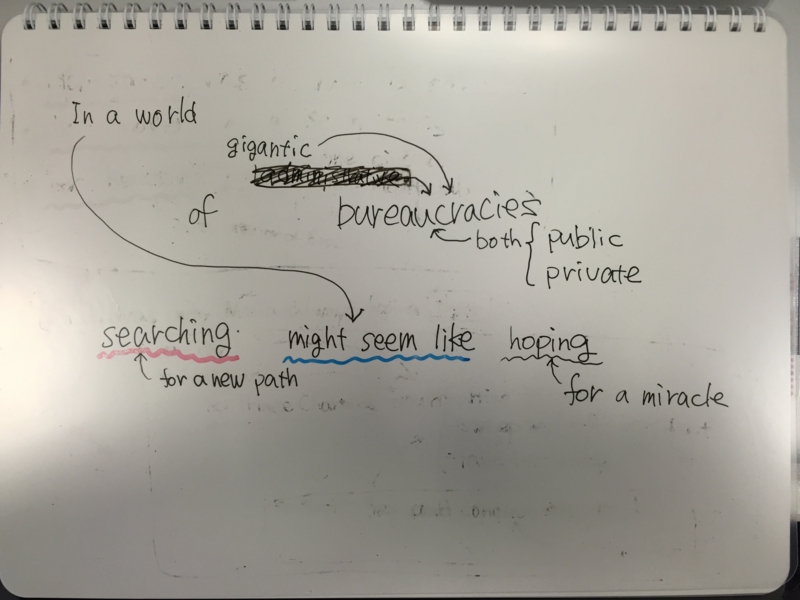 In a world
gigantic
of bureaucracies
both { public
private
searching might seem like hoping
for a new path
for a miracle